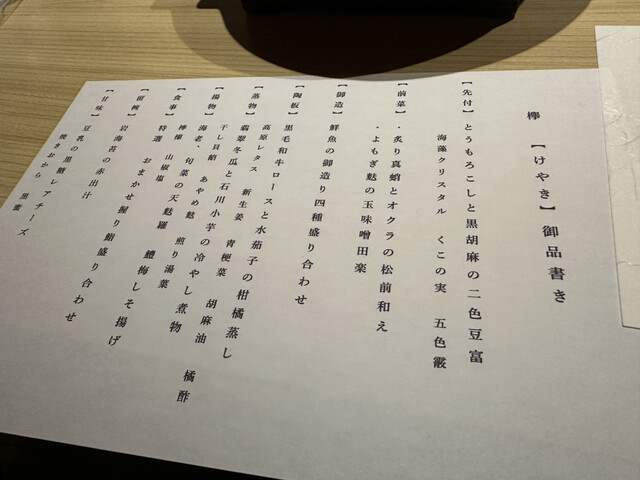 欅 【けやき】御品書き
【先付】とうもろこしと黒胡麻の二色豆富
海藻クリスタル くこの実 五色霰
【前菜】・炙り真蛸とオクラの松前和え
・よもぎ麩の玉味噌田楽
【御造】鮮魚の御造り四種盛り合わせ
【陶板】黒毛和牛ロースと水茄子の柑橘蒸し
高原レタス 新生姜 青梗菜 胡麻油 橘酢
【蒸物】翡翠冬瓜と石川小芋の冷やし煮物
干し貝餡 あやめ麩 煎り湯葉
【揚物】海老、旬菜の天麩羅 鱧梅しそ揚げ
檸檬 山椒塩
【食事】特選 おまかせ握り鮨盛り合わせ
【留椀】岩海苔の赤出汁
【甘味】豆乳の黒糖レアチーズ
焼きおから 黒蜜